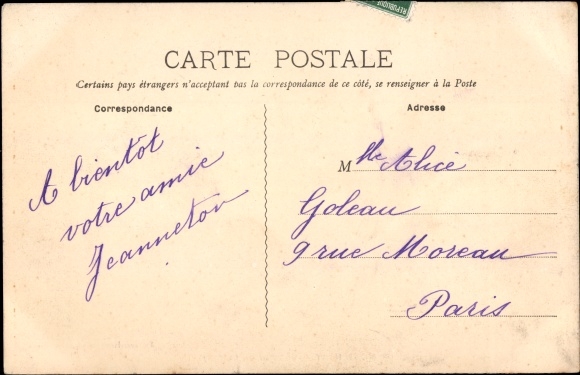 REPUBLIQUE
CARTE POSTALE
Certains pays étrangers n'acceptant pas la correspondance de ce côté, se renseigner à la Poste
Correspondance
Adresse
A bientot
votre amie
Jeanneton
Mlle Alice
Goleau
9 rue Moreau
Paris